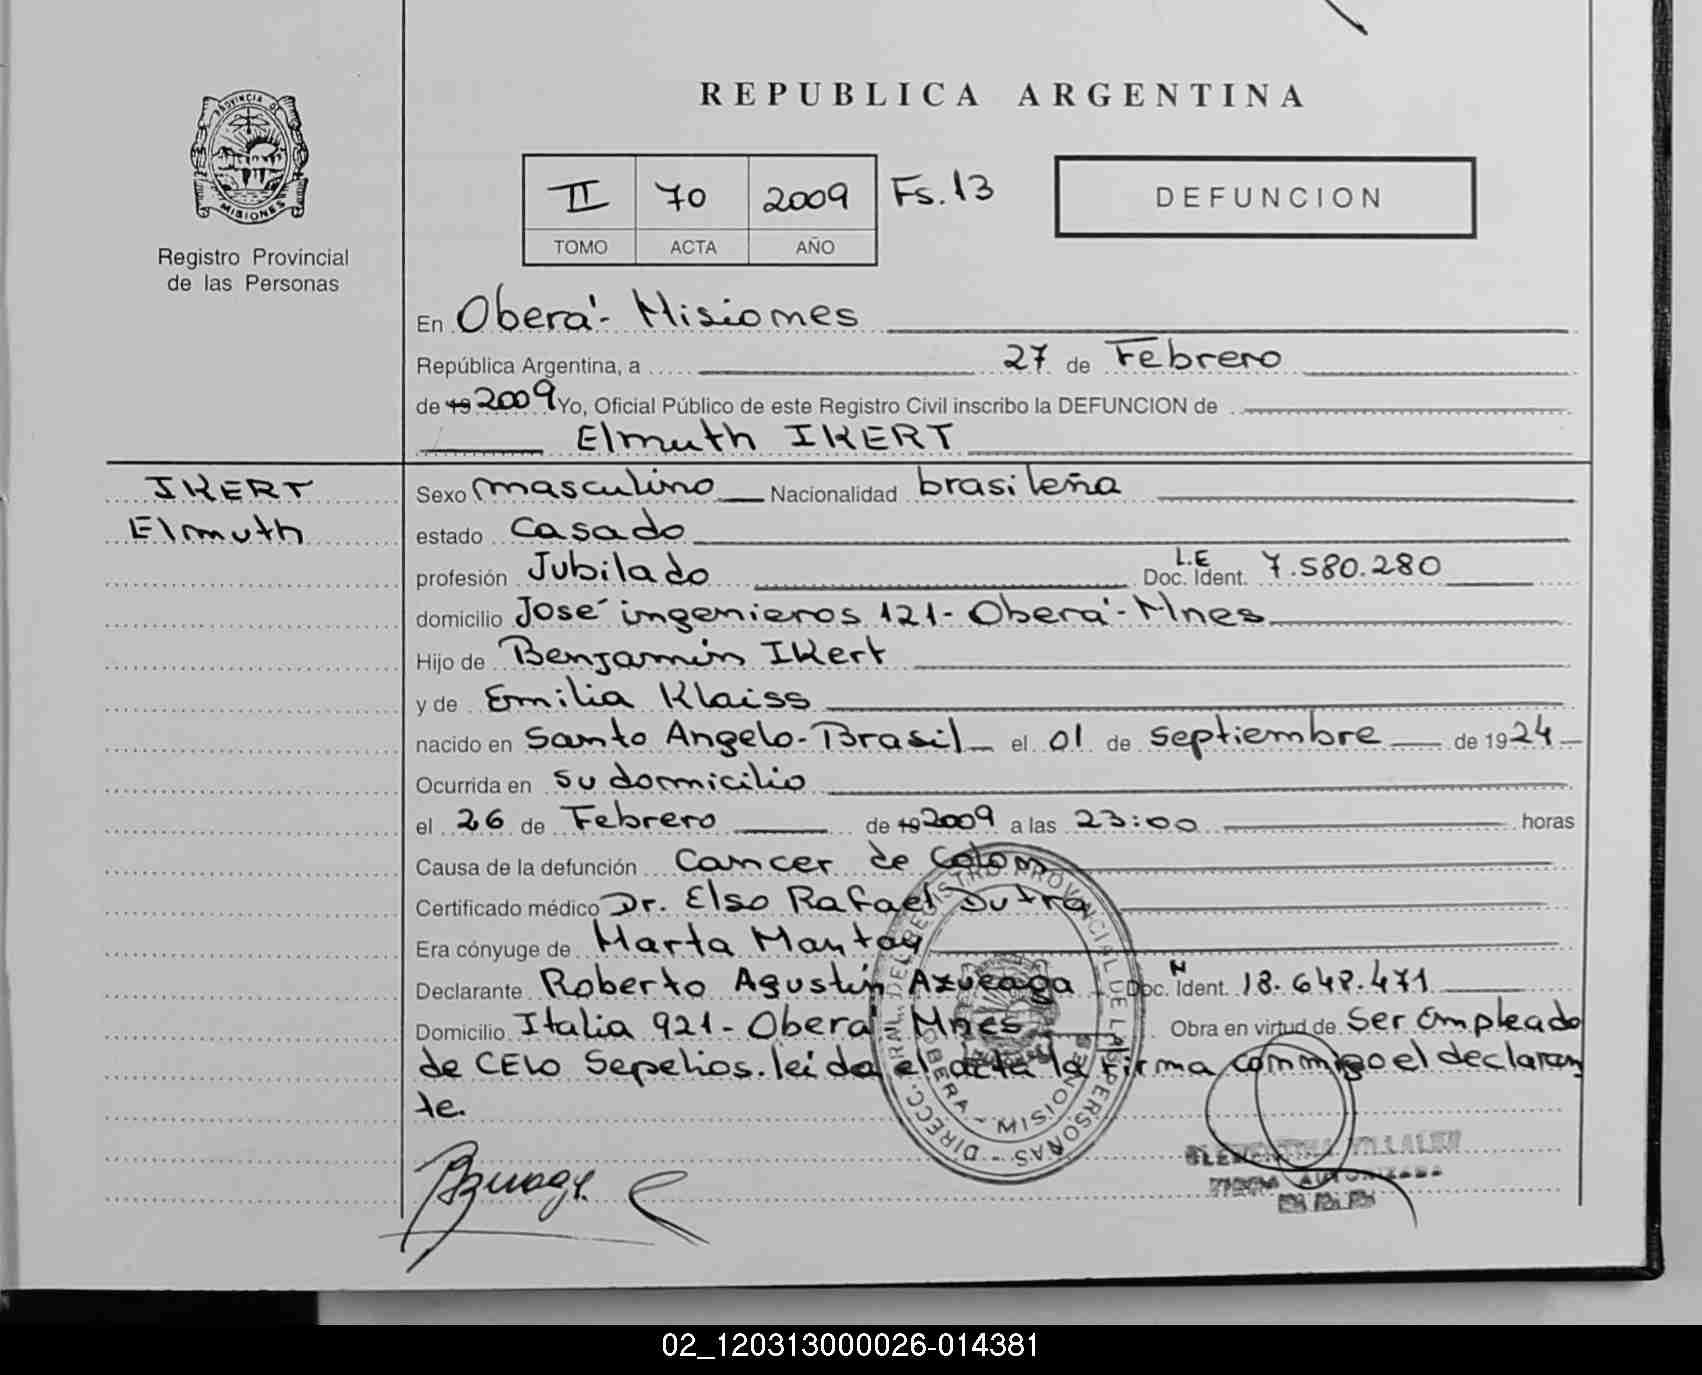 REPUBLICA ARGENTINA
PROVINCIA DE
MISIONES
Registro Provincial
de las Personas
II 70 2009 Fs. 13
TOMO ACTA AÑO
DEFUNCION
En Oberá - Misiones
República Argentina, a 27 de Febrero
de 19 2009 Yo, Oficial Público de este Registro Civil inscribo la DEFUNCION de
Elmuth IKERT
IKERT
Elmuth
Sexo masculino Nacionalidad brasileña
estado casado
profesión Jubilado Doc. Ident. L.E 7.580.280
domicilio José ingenieros 121 - Oberá - Mnes
Hijo de Benjamín IKert
y de Emilia Klaiss
nacido en Santo Angelo - Brasil el 01 de septiembre de 1924
Ocurrida en su domicilio
el 26 de Febrero de 19 2009 a las 23:00 horas
Causa de la defunción Cancer de Colon
Certificado médico Dr. Elso Rafael Dutra
Era cónyuge de Marta Mantay
Declarante Roberto Agustín Azueaga Doc. Ident. N 18.648.471
Domicilio Italia 921 - Oberá Mnes Obra en virtud de ser empleado
de CELO Sepelios. leida el acta la firma conmigo el declaran
te.
DIRECC. GRAL. DEL REGISTRO PROVINCIAL DE LAS PERSONAS
OBERA - MISIONES
02_120313000026-014381